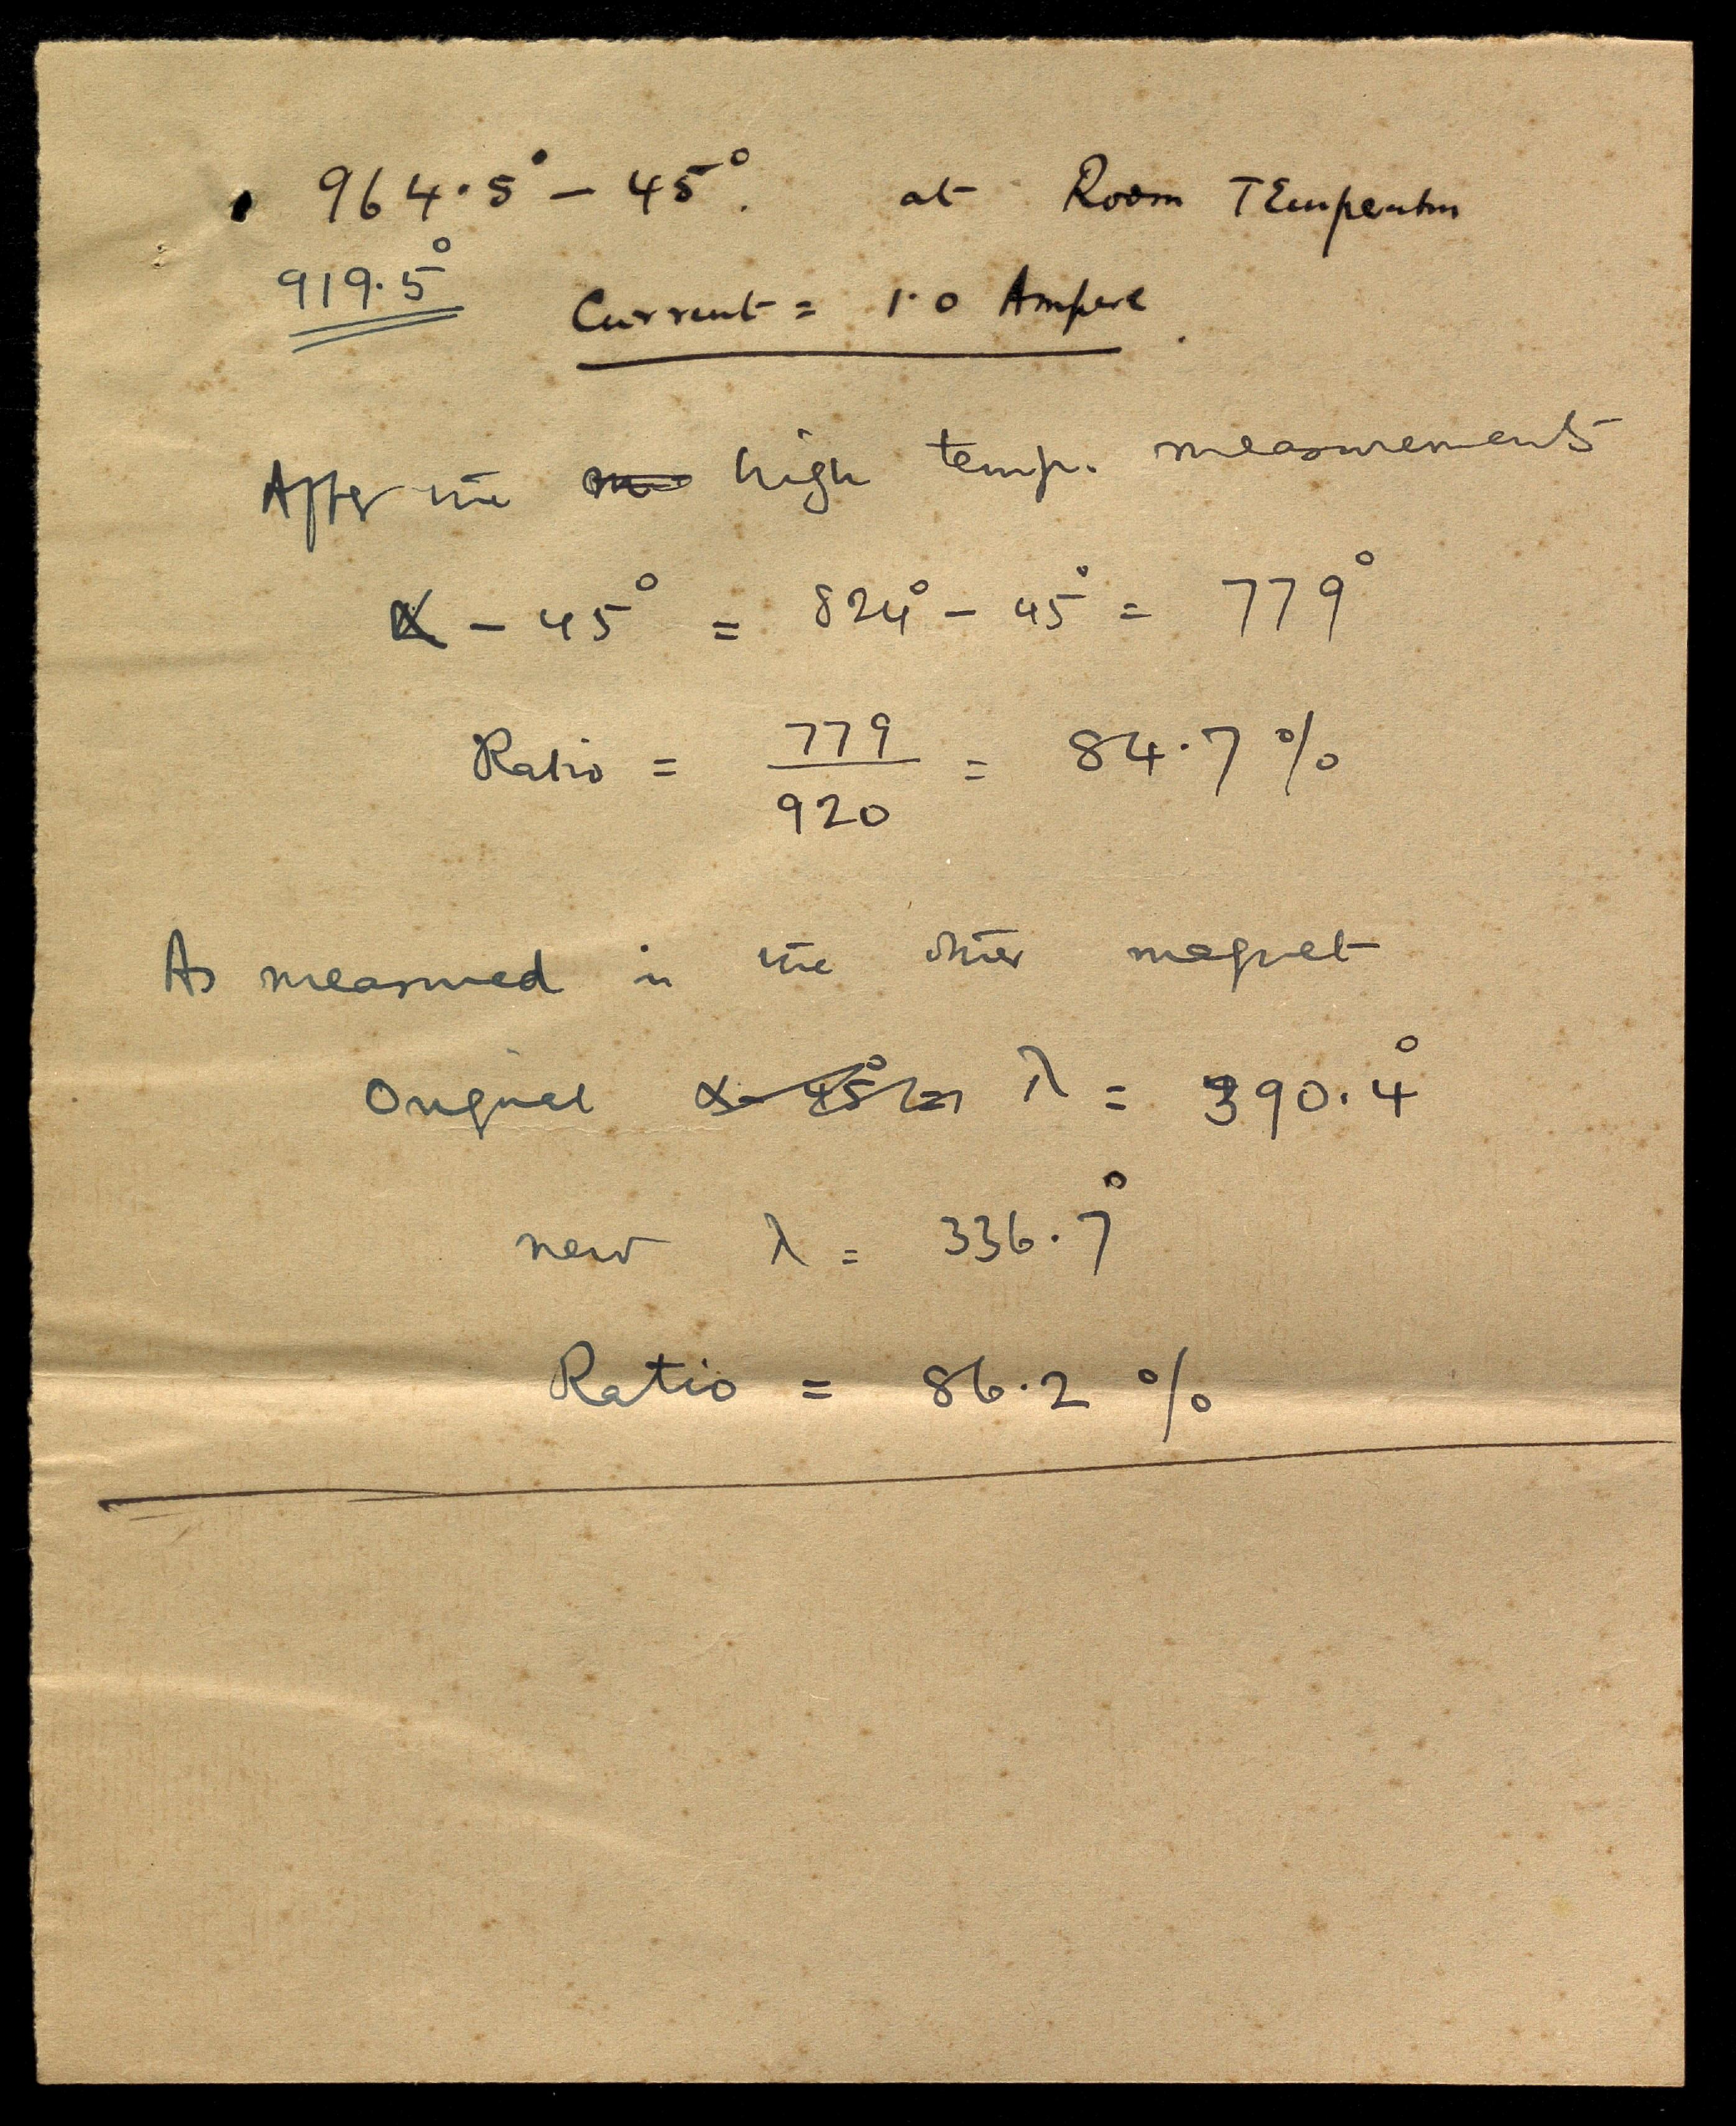 964.5° – 45°. at Room TEmperature
919.5°
Current = 1.0 Ampere.
After the high temp. measurements
α – 45° = 824° – 45° = 779°
Ratio = 779/920 = 84.7 %
As measured in the other magnet
Original α – 45° = λ = 390.4°
new λ = 336.7°
Ratio = 86.2 %